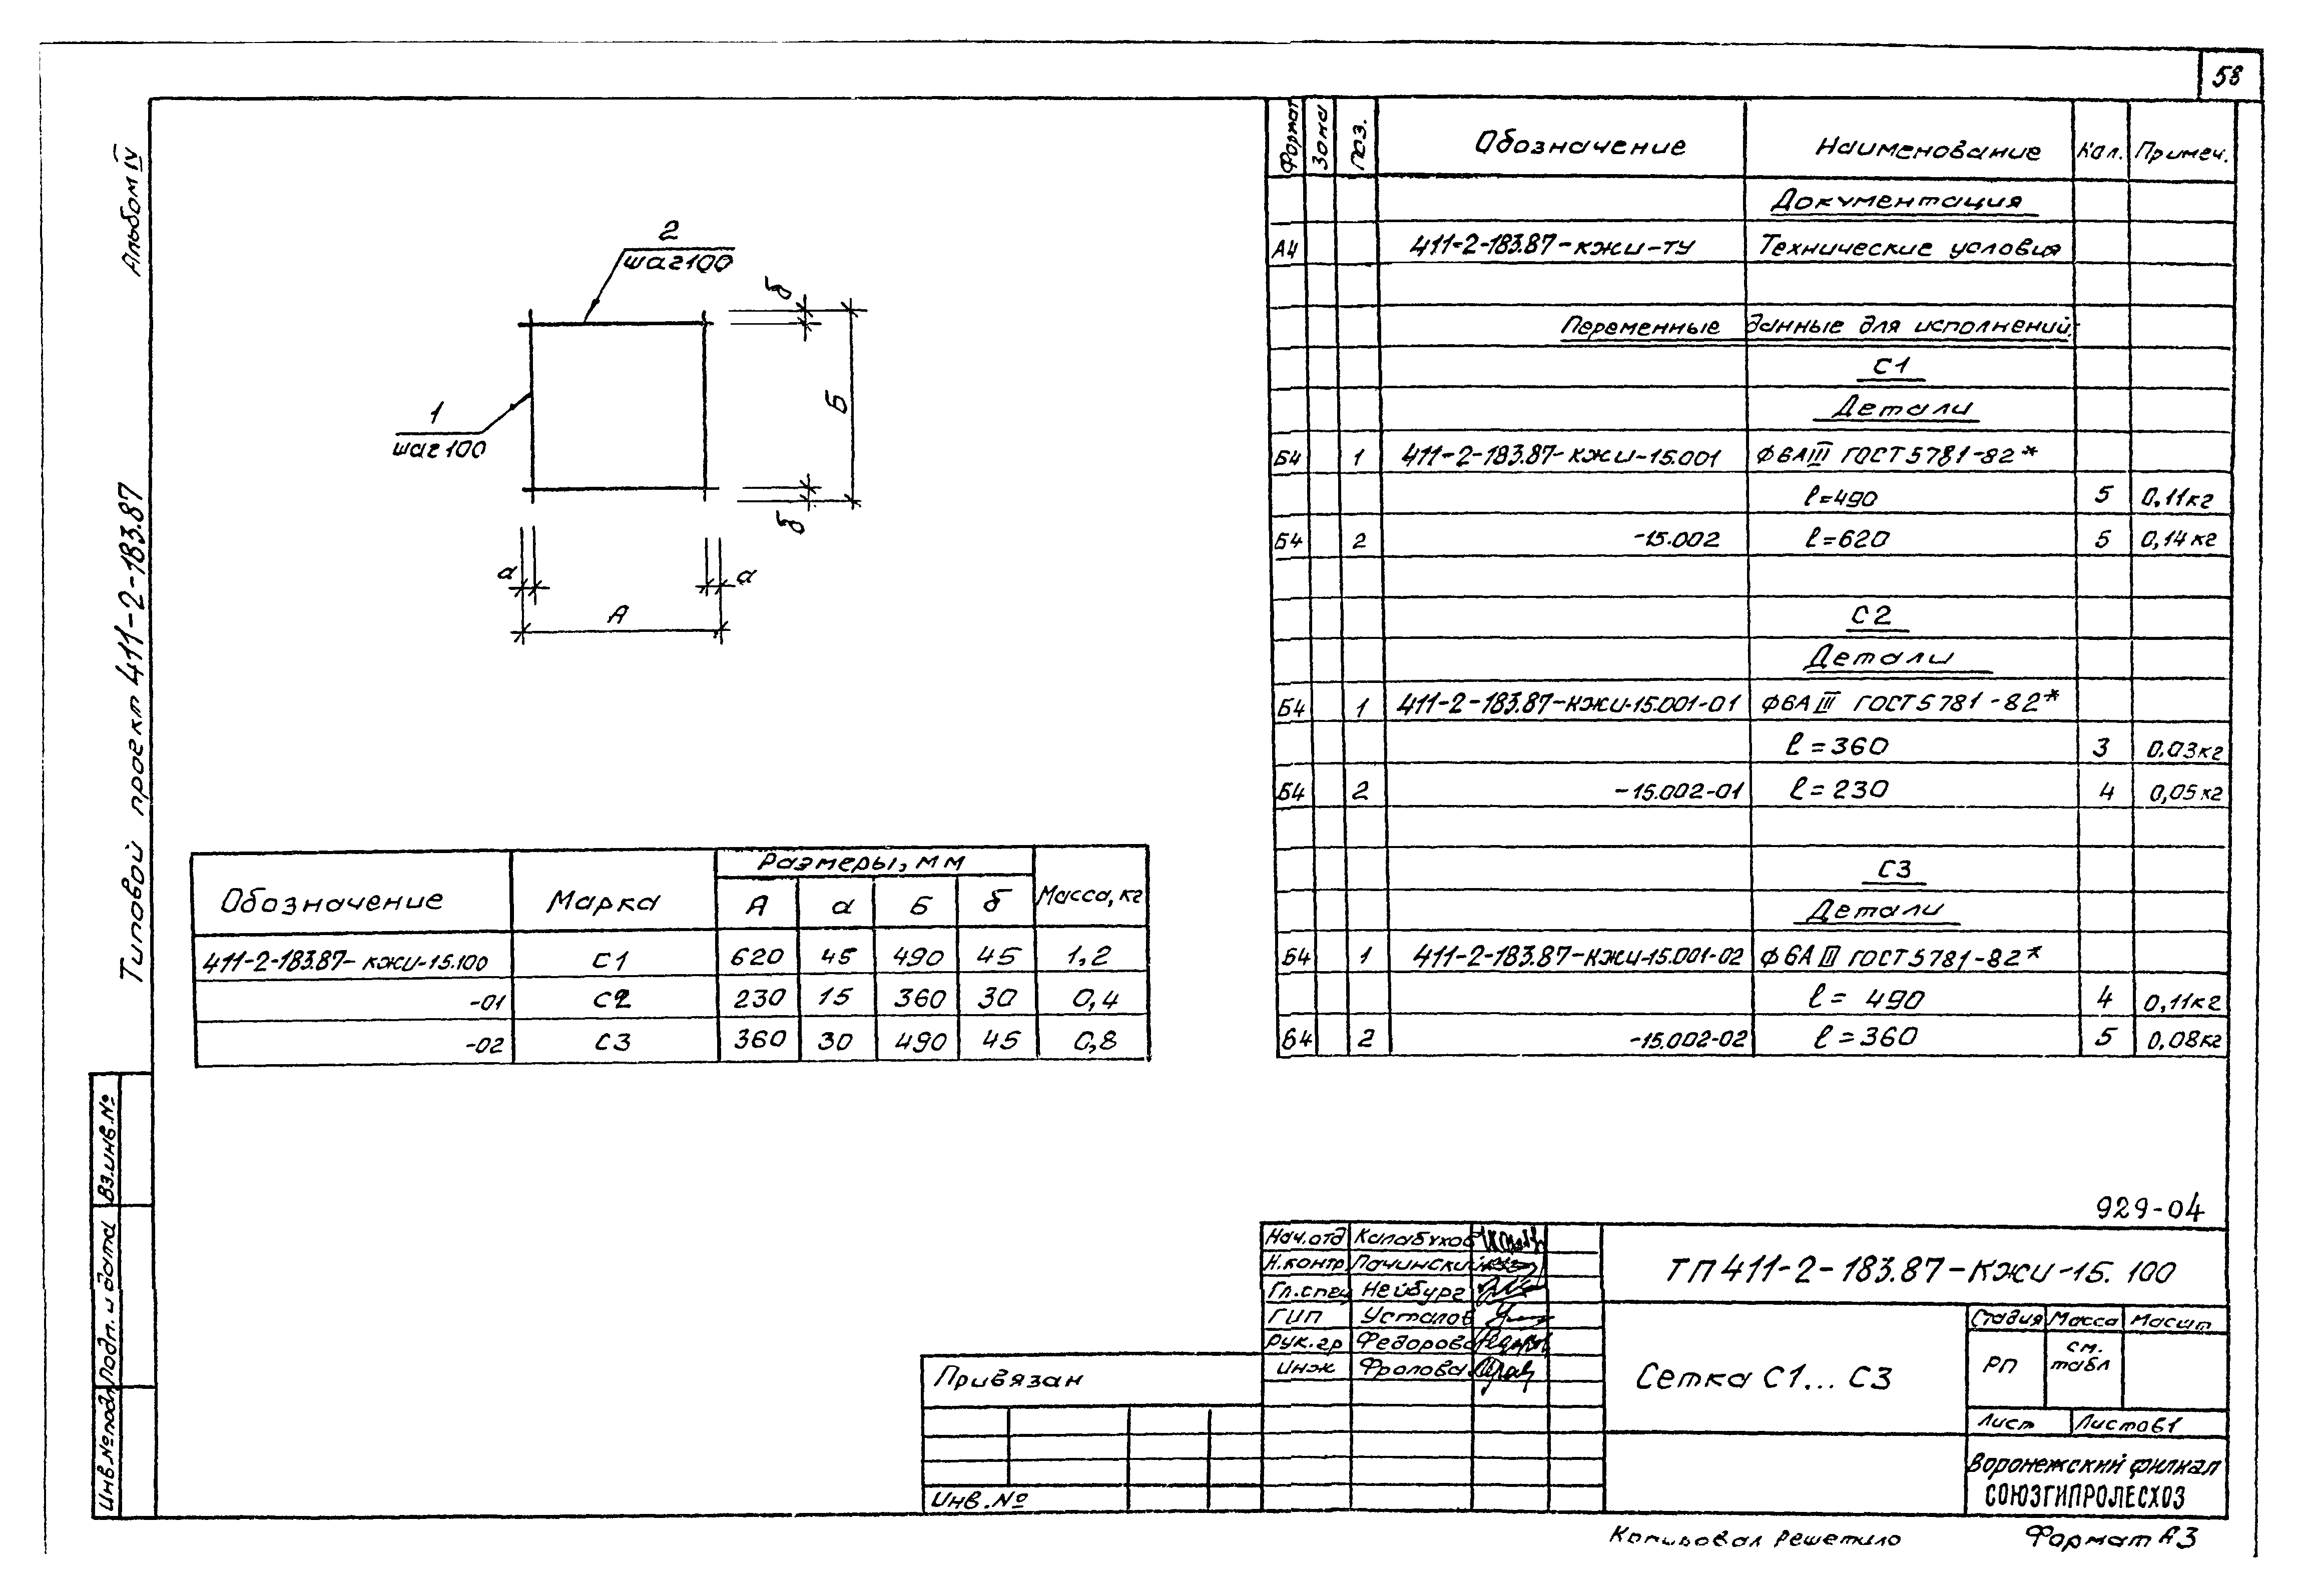 58
Альбом IV
Типовой проект 411-2-183.87
2
шаг 100
1
шаг 100
б
Б
б
а
а
А
Обозначение Марка Размеры, мм Масса, кг
А а Б б
411-2-183.87-КЖИ-15.100 С1 620 45 490 45 1,2
-01 С2 230 15 360 30 0,4
-02 С3 360 30 490 45 0,8
Формат Зона Поз. Обозначение Наименование Кол. Примеч.
Документация
А4 411-2-183.87-КЖИ-ТУ Технические условия
Переменные данные для исполнений:
С1
Детали
Б4 1 411-2-183.87-КЖИ-15.001 ϕ6АIII ГОСТ 5781-82*
ℓ=490 5 0,11кг
Б4 2 -15.002 ℓ=620 5 0,14кг
С2
Детали
Б4 1 411-2-183.87-КЖИ-15.001-01 ϕ6АIII ГОСТ 5781-82*
ℓ=360 3 0.03кг
Б4 2 -15.002-01 ℓ=230 4 0,05кг
С3
Детали
Б4 1 411-2-183.87-КЖИ-15.001-02 ϕ6АIII ГОСТ 5781-82*
ℓ= 490 4 0,11кг
Б4 2 -15.002-02 ℓ=360 5 0,08кг
Вз.инв.№
Подп. и дата
Инв.№подл.
929-04
Нач.отд Калабухов
Н.контр. Пачинский
Гл.спец Нейбург
ГИП Усталов
Рук.гр Федорова
Инж Фролова
ТП 411-2-183.87-КЖИ-15.100
Сетка С1...С3
Стадия Масса Масшт
РП см. табл
Лист Листов 1
Воронежский филиал
СОЮЗГИПРОЛЕСХОЗ
Привязан
Инв.№
Копировал Решетило
Формат А3